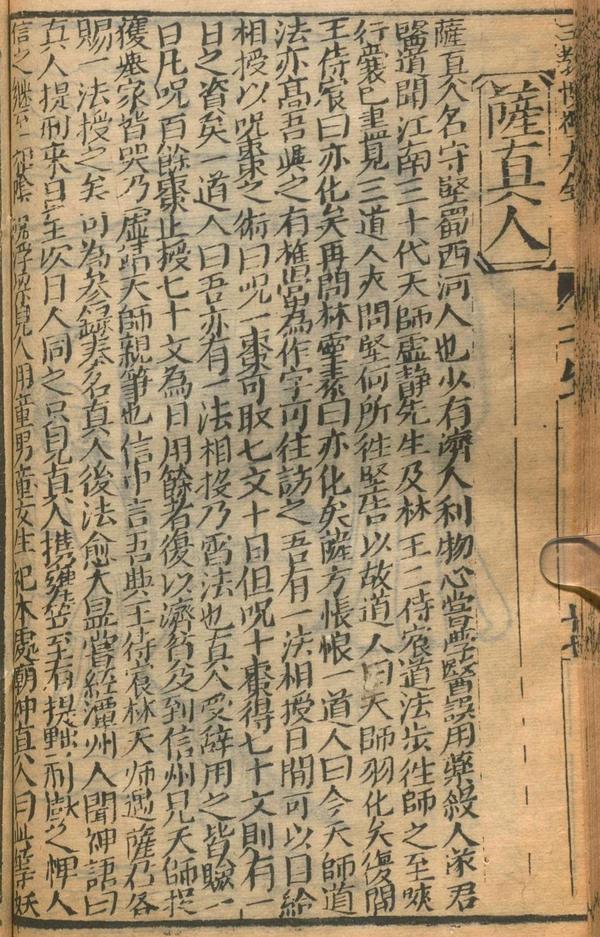 薩真人
薩真人名守堅蜀西河人也少有濟人利物心嘗學醫誤用藥殺人遂弃
醫道聞江南三十代天師虛静先生及林王二侍宸道法步徃師之至陜
行囊已盡見三道人來問堅何所徃堅告以故道人曰天師羽化矣復問
王侍宸曰亦化矣再問林靈素曰亦化矣薩方悵恨一道人曰今天師道
法亦高吾與之有舊當為作字可徃訪之吾有一法相授日間可以日給
相授以咒棗之術曰咒一棗可取七文十日但咒十棗得七十文則有一
日之資矣一道人曰吾亦有一法相授乃雷法也真人受辭用之皆驗一
日凡咒百餘棗止授七十文為日用餘者復以濟貧及到信州見天師投
獲舉家皆哭乃虛靖天師親筆也信中言吾與王侍宸林天师遇薩乃各
賜一法授之矣可為參錄奏名真人後法愈大显嘗經潭州人聞神語曰
真人提刑來日至次日人伺之只見真人攜甕笠至有提點刑獄之牌人
信之繼至 見人用童男童女生祀本處廟神真人曰此等妖